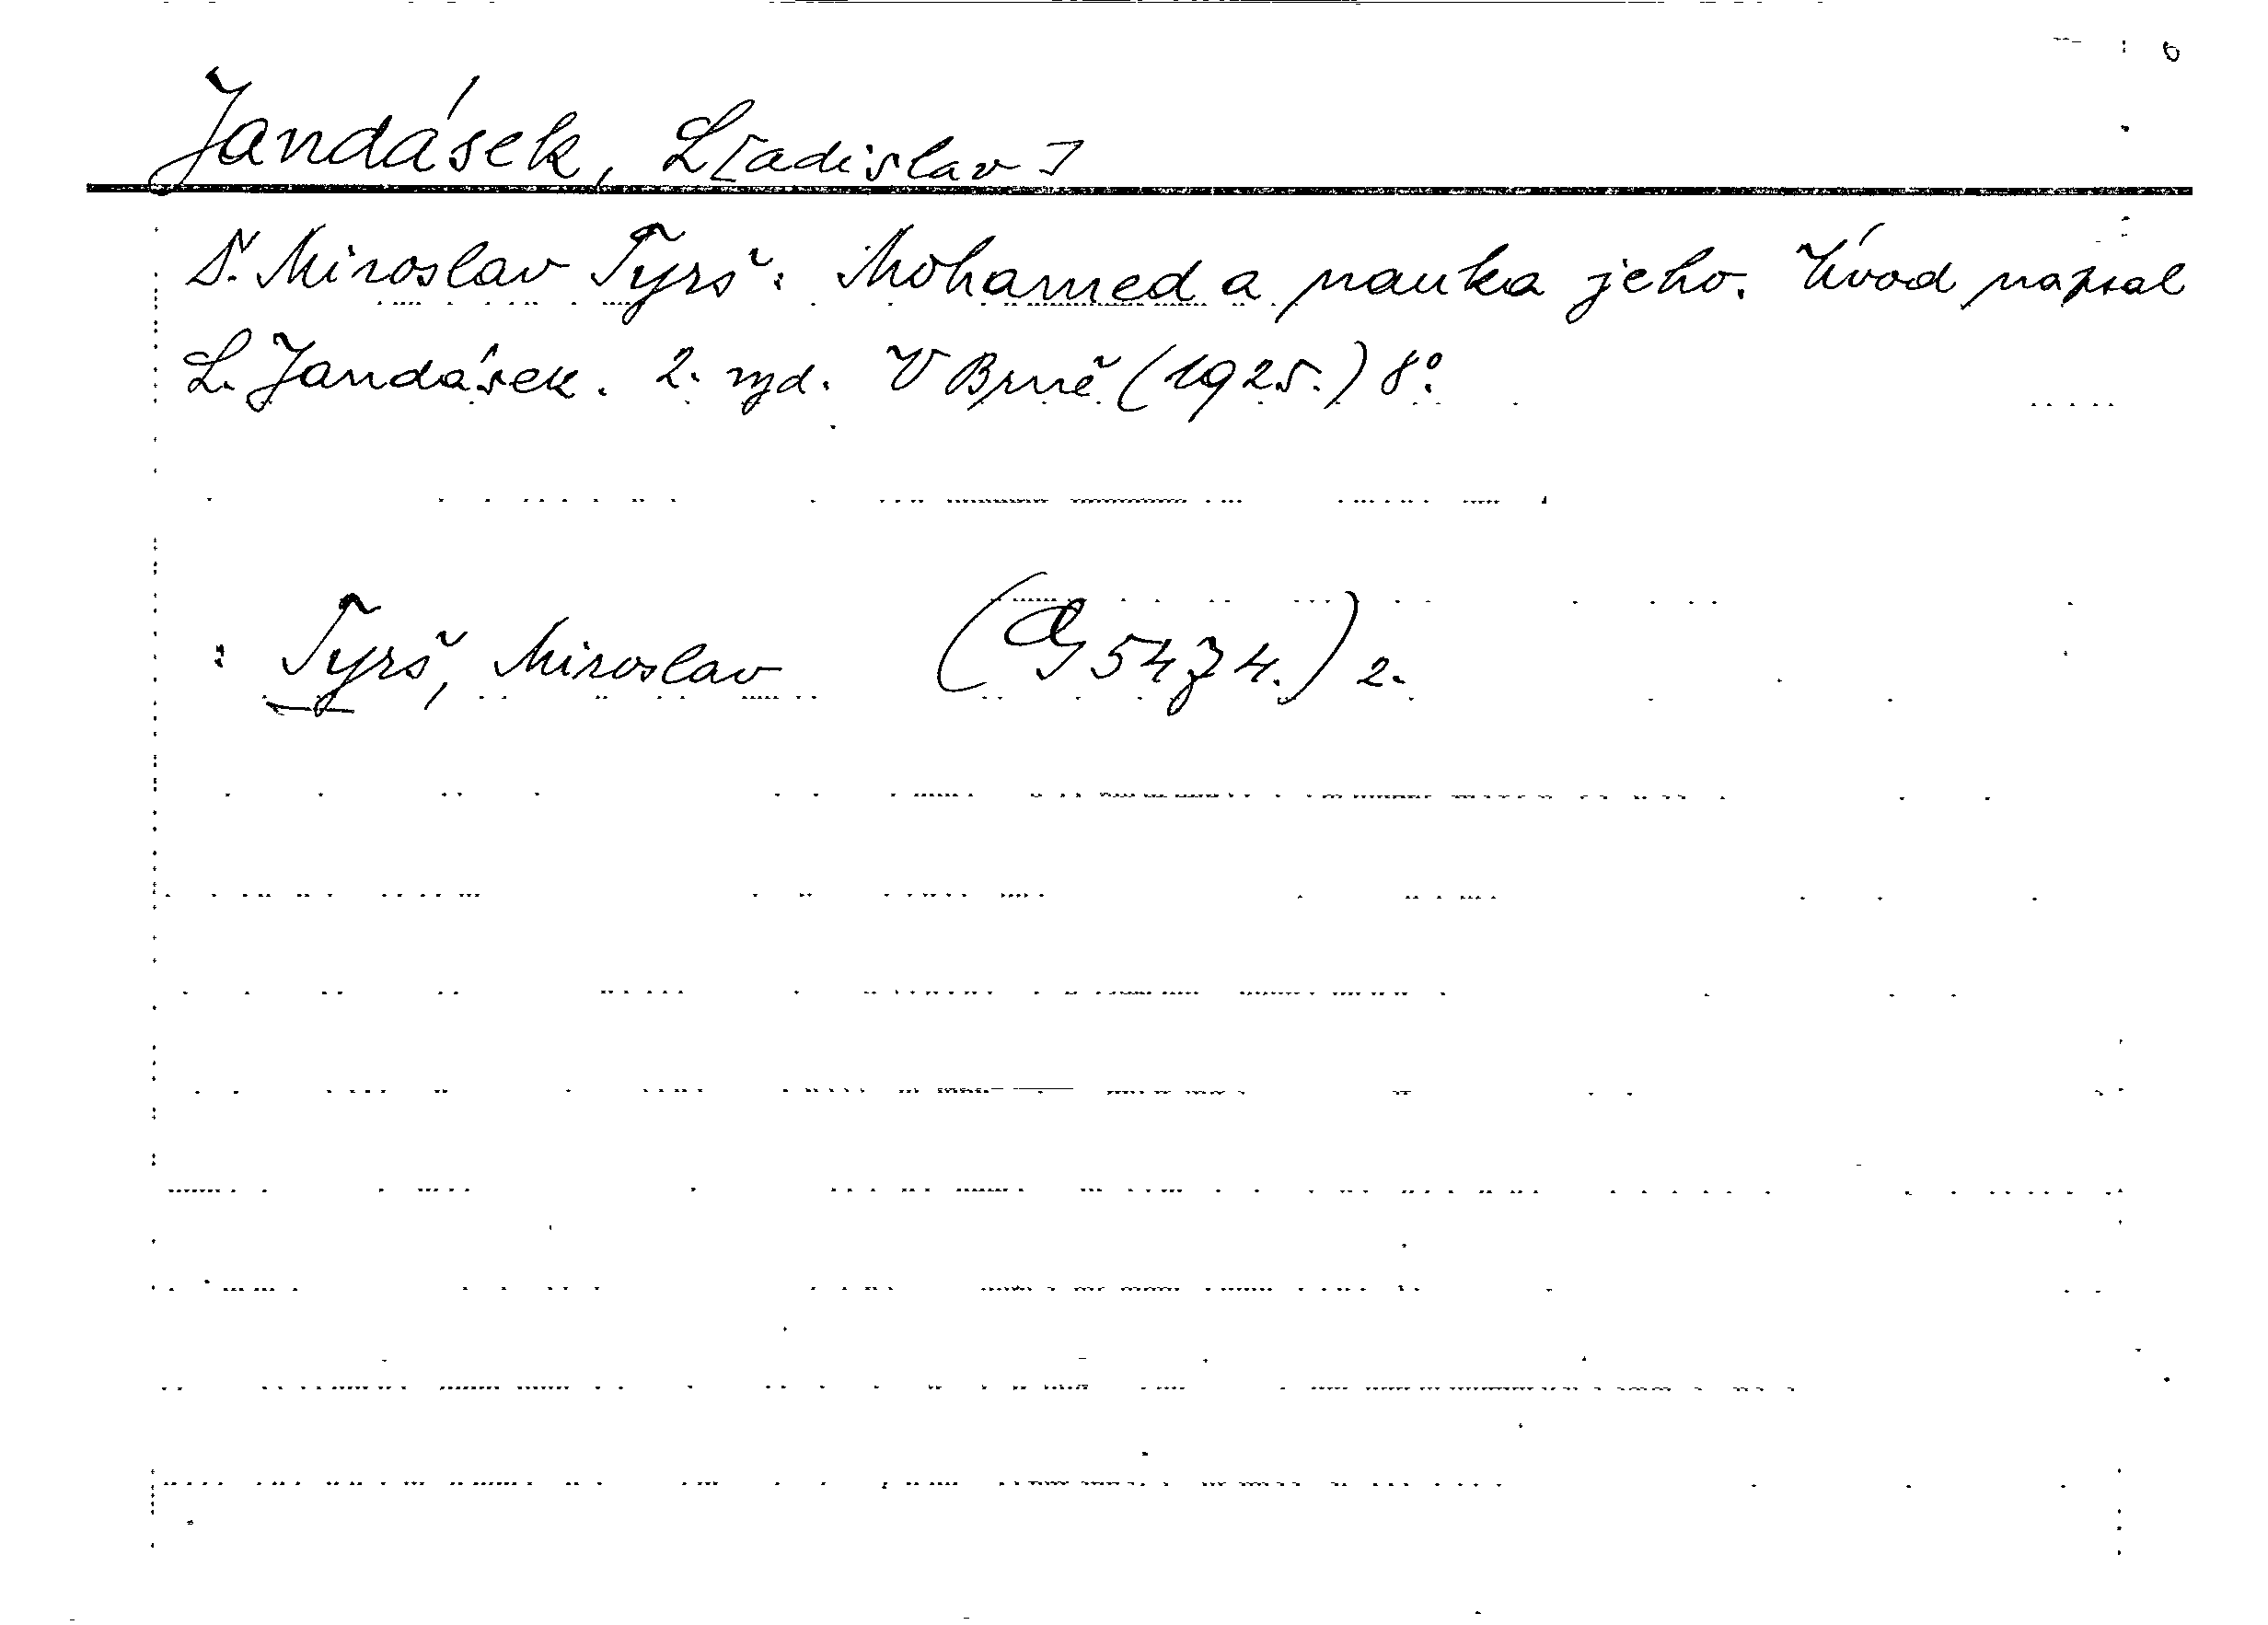 Jandásek, L[adislav]
Dr. Miroslav Tyrš: Mohamed a nauka jeho. Úvod napsal
L. Jandásek. 2. vyd. V Brně (1925.) 8°.
: Tyrš, Miroslav 5474.) 2.